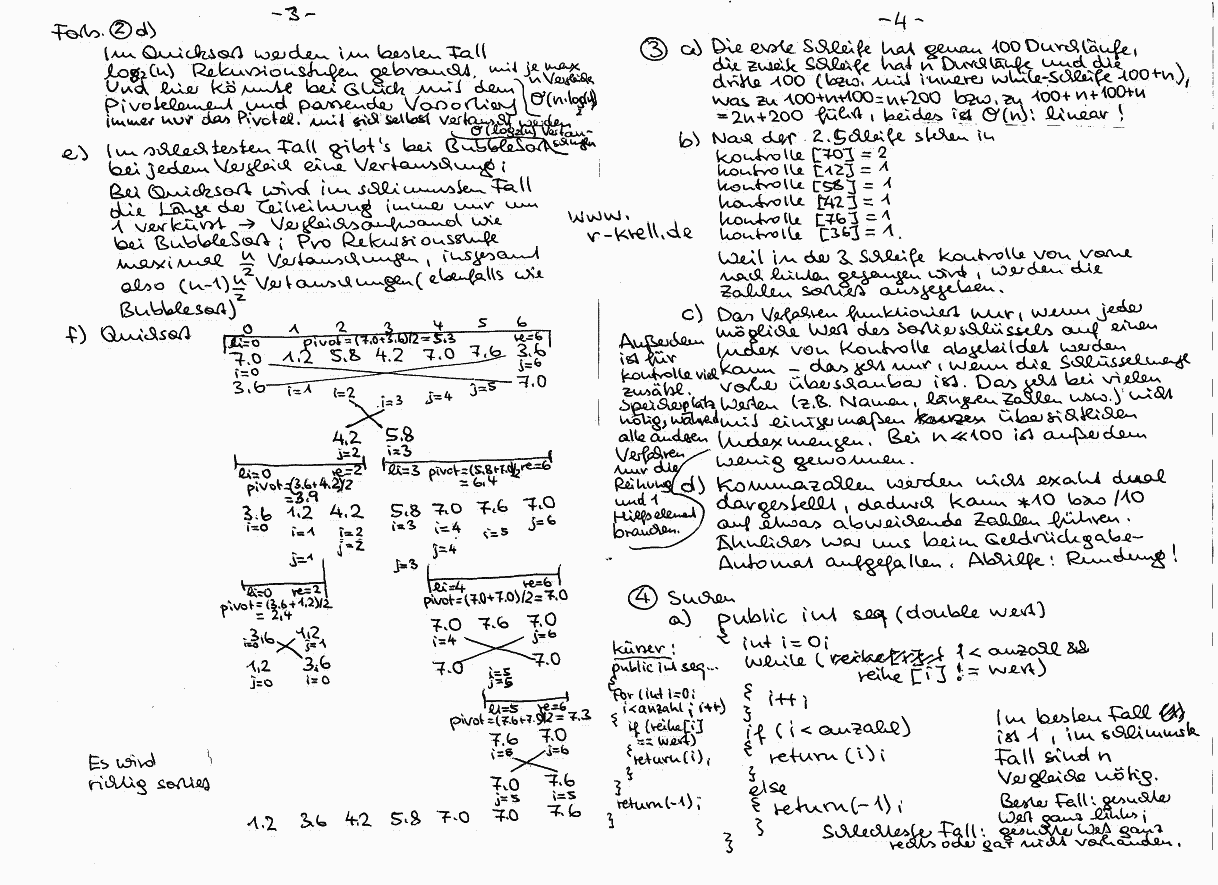 -3-
Forts. ② d)
Im Quicksort werden im besten Fall
log₂(n) Rekursionstufen gebraucht, mit je max
n Vergleiche
Und hier könnte bei Glück mit dem
Pivotelement und passender Vorsortierg
O(n·log(n))
immer nur das Pivotel. mit sich selbst vertauscht werden
O(log₂(n)) Vertau-
schungen
e) Im schlechtesten Fall gibt's bei BubbleSort
bei jedem Vergleich eine Vertauschung;
Bei Quicksort wird im schlimmsten Fall
die Länge der Teilreihung immer nur um
1 verkürzt → Vergleichsaufwand wie
bei BubbleSort; Pro Rekursionsstufe
maximal n/2 Vertauschungen, insgesamt
also (n-1) n/2 Vertauschungen (ebenfalls wie
BubbleSort)
f) Quicksort
0 1 2 3 4 5 6
li=0 pivot=(7.0+3.6)/2=5.3 re=6
7.0 1.2 5.8 4.2 7.0 7.6 3.6
i=0 j=6
3.6 i=1 i=2 i=3 j=4 j=5 7.0
4.2 5.8
j=2 i=3
li=0 re=2 li=3 pivot=(5.8+7.0)/2 re=6
pivot=(3.6+4.2)/2 = 6.4
=3.9
3.6 1.2 4.2 5.8 7.0 7.6 7.0
i=0 i=1 i=2 i=3 i=4 i=5 j=6
j=2 j=4
j=1 j=3
li=0 re=2 li=4 re=6
pivot=(3.6+1.2)/2 pivot=(7.0+7.0)/2=7.0
= 2.4
3.6 1.2 7.0 7.6 7.0
i=0 j=1 i=4 j=6
1.2 3.6 7.0 i=5 7.0
j=0 i=0 j=5
li=5 re=6
pivot=(7.6+7.0)/2=7.3
7.6 7.0
i=5 j=6
7.0 7.6
j=5 i=5
Es wird
richtig sortiert
1.2 3.6 4.2 5.8 7.0 7.0 7.6
www.
r-krell.de
-4-
③ a) Die erste Schleife hat genau 100 Durchläufe,
die zweite Schleife hat n Durchläufe und die
dritte 100 (bzw. mit innerer while-Schleife 100+n),
was zu 100+n+100=n+200 bzw. zu 100+n+100+n
=2n+200 führt, beides ist O(n): linear!
b) Nach der 2. Schleife stehen in
kontrolle [70] = 2
kontrolle [12] = 1
kontrolle [58] = 1
kontrolle [42] = 1
kontrolle [76] = 1
kontrolle [36] = 1.
Weil in der 3. Schleife Kontrolle von vorne
nach hinten gegangen wird, werden die
Zahlen sortiert ausgegeben.
c) Das Verfahren funktioniert nur, wenn jeder
mögliche Wert des Sortierschlüssels auf einen
Index von Kontrolle abgebildet werden
kann – das geht nur, wenn die Schlüsselmenge
vorher überschaubar ist. Das geht bei vielen
Werten (z.B. Namen, längeren Zahlen usw.) nicht
mit einigermaßen kurzen übersichtlichen
Indexmengen. Bei n≪100 ist außerdem
wenig gewonnen.
Außerdem
ist für
kontrolle viel
zusätzl.
Speicherplatz
nötig, während
alle anderen
Verfahren
nur die
Reihung
und 1
Hilfselement
brauchen.
d) Kommazahlen werden nicht exakt dual
dargestellt, dadurch kann *10 bzw /10
auf etwas abweichende Zahlen führen.
Ähnliches war uns beim Geldrückgabe-
Automat aufgefallen. Abhilfe: Rundung!
④ Suchen
a) public int seq (double wert)
{ int i=0;
while (i < anzahl &&
reihe [i] != wert)
{ i++;
}
if (i < anzahl)
{ return (i);
}
else
{ return (-1);
}
}
kürzer:
public int seq...
{
for (int i=0;
i<anzahl; i++)
{ if (reihe[i]
== wert)
{ return (i);
}
}
return (-1);
}
Im besten Fall
ist 1, im schlimmsten
Fall sind n
Vergleiche nötig.
Bester Fall: gesuchter
Wert ganz links;
Schlechtester Fall: gesuchter Wert ganz
rechts oder gar nicht vorhanden.